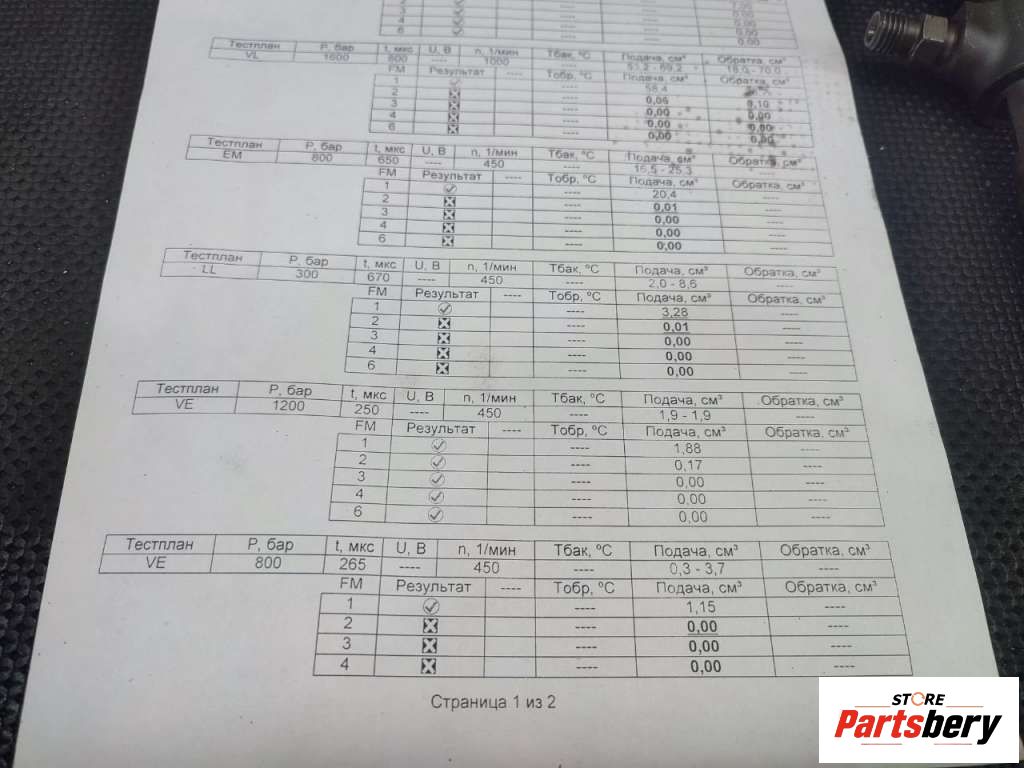 3 ---- 0,00
4 ---- 0,00
6 ---- 0,00
---- 0.00
Тестплан Р, бар t, мкс U, В n, 1/мин Тбак, ºC Подача, см³ Обратка, см³
VL 1600 800 ---- 1000 ----
FM Результат ---- Тобр, ºC Подача, см³ Обратка, см³
1 ---- 58,4
2 ---- 0,06 0,10
3 ---- 0,00 0,00
4 ---- 0,00 0,00
6 ---- 0,00 0,00
Тестплан Р, бар t, мкс U, В n, 1/мин Тбак, ºC Подача, см³ Обратка, см³
EM 800 650 ---- 450 ---- 16,5 - 25,3 ----
FM Результат ---- Тобр, ºC Подача, см³ Обратка, см³
1 ---- 20,4 ----
2 ---- 0,01 ----
3 ---- 0,00 ----
4 ---- 0,00 ----
6 ---- 0,00 ----
Тестплан Р, бар t, мкс U, В n, 1/мин Тбак, ºC Подача, см³ Обратка, см³
LL 300 670 ---- 450 ---- 2,0 - 8,6 ----
FM Результат ---- Тобр, ºC Подача, см³ Обратка, см³
1 ---- 3,28 ----
2 ---- 0,01 ----
3 ---- 0,00 ----
4 ---- 0,00 ----
6 ---- 0,00 ----
Тестплан Р, бар t, мкс U, В n, 1/мин Тбак, ºC Подача, см³ Обратка, см³
VE 1200 250 ---- 450 ---- 1,9 - 1,9 ----
FM Результат ---- Тобр, ºC Подача, см³ Обратка, см³
1 ---- 1,88 ----
2 ---- 0,17 ----
3 ---- 0,00 ----
4 ---- 0,00 ----
6 ---- 0,00 ----
Тестплан Р, бар t, мкс U, В n, 1/мин Тбак, ºC Подача, см³ Обратка, см³
VE 800 265 ---- 450 ---- 0,3 - 3,7 ----
FM Результат ---- Тобр, ºC Подача, см³ Обратка, см³
1 ---- 1,15 ----
2 ---- 0,00 ----
3 ---- 0,00 ----
4 ---- 0,00 ----
Страница 1 из 2
STORE
Partsbery